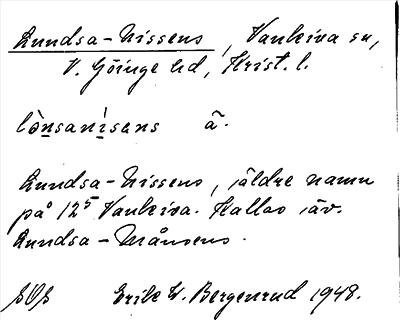 Lundsa-Nissens, Vankiva sn,
V. Göinge hd, Krist. l.
lònsanìsens ã.
Lundsa-Nissens, äldre namn
på 12⁵ Vankiva. Kallas äv.
Lundsa-Månsens.
SOS Erik W. Bergenrud 1948.